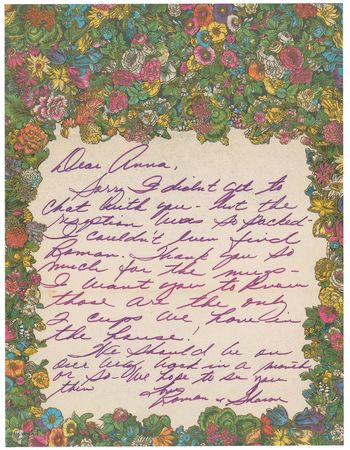 Dear Anna,
Sorry I didn't get to
chat with you - but the
reception was so packed -
I couldn't even find
Roman. Thank you so
much for the mugs -
I want you to know
those are the only
2 cups we have in
the house!
We should be on
our way back in a month
or so - we hope to see you
then Love
Roman & Sharon